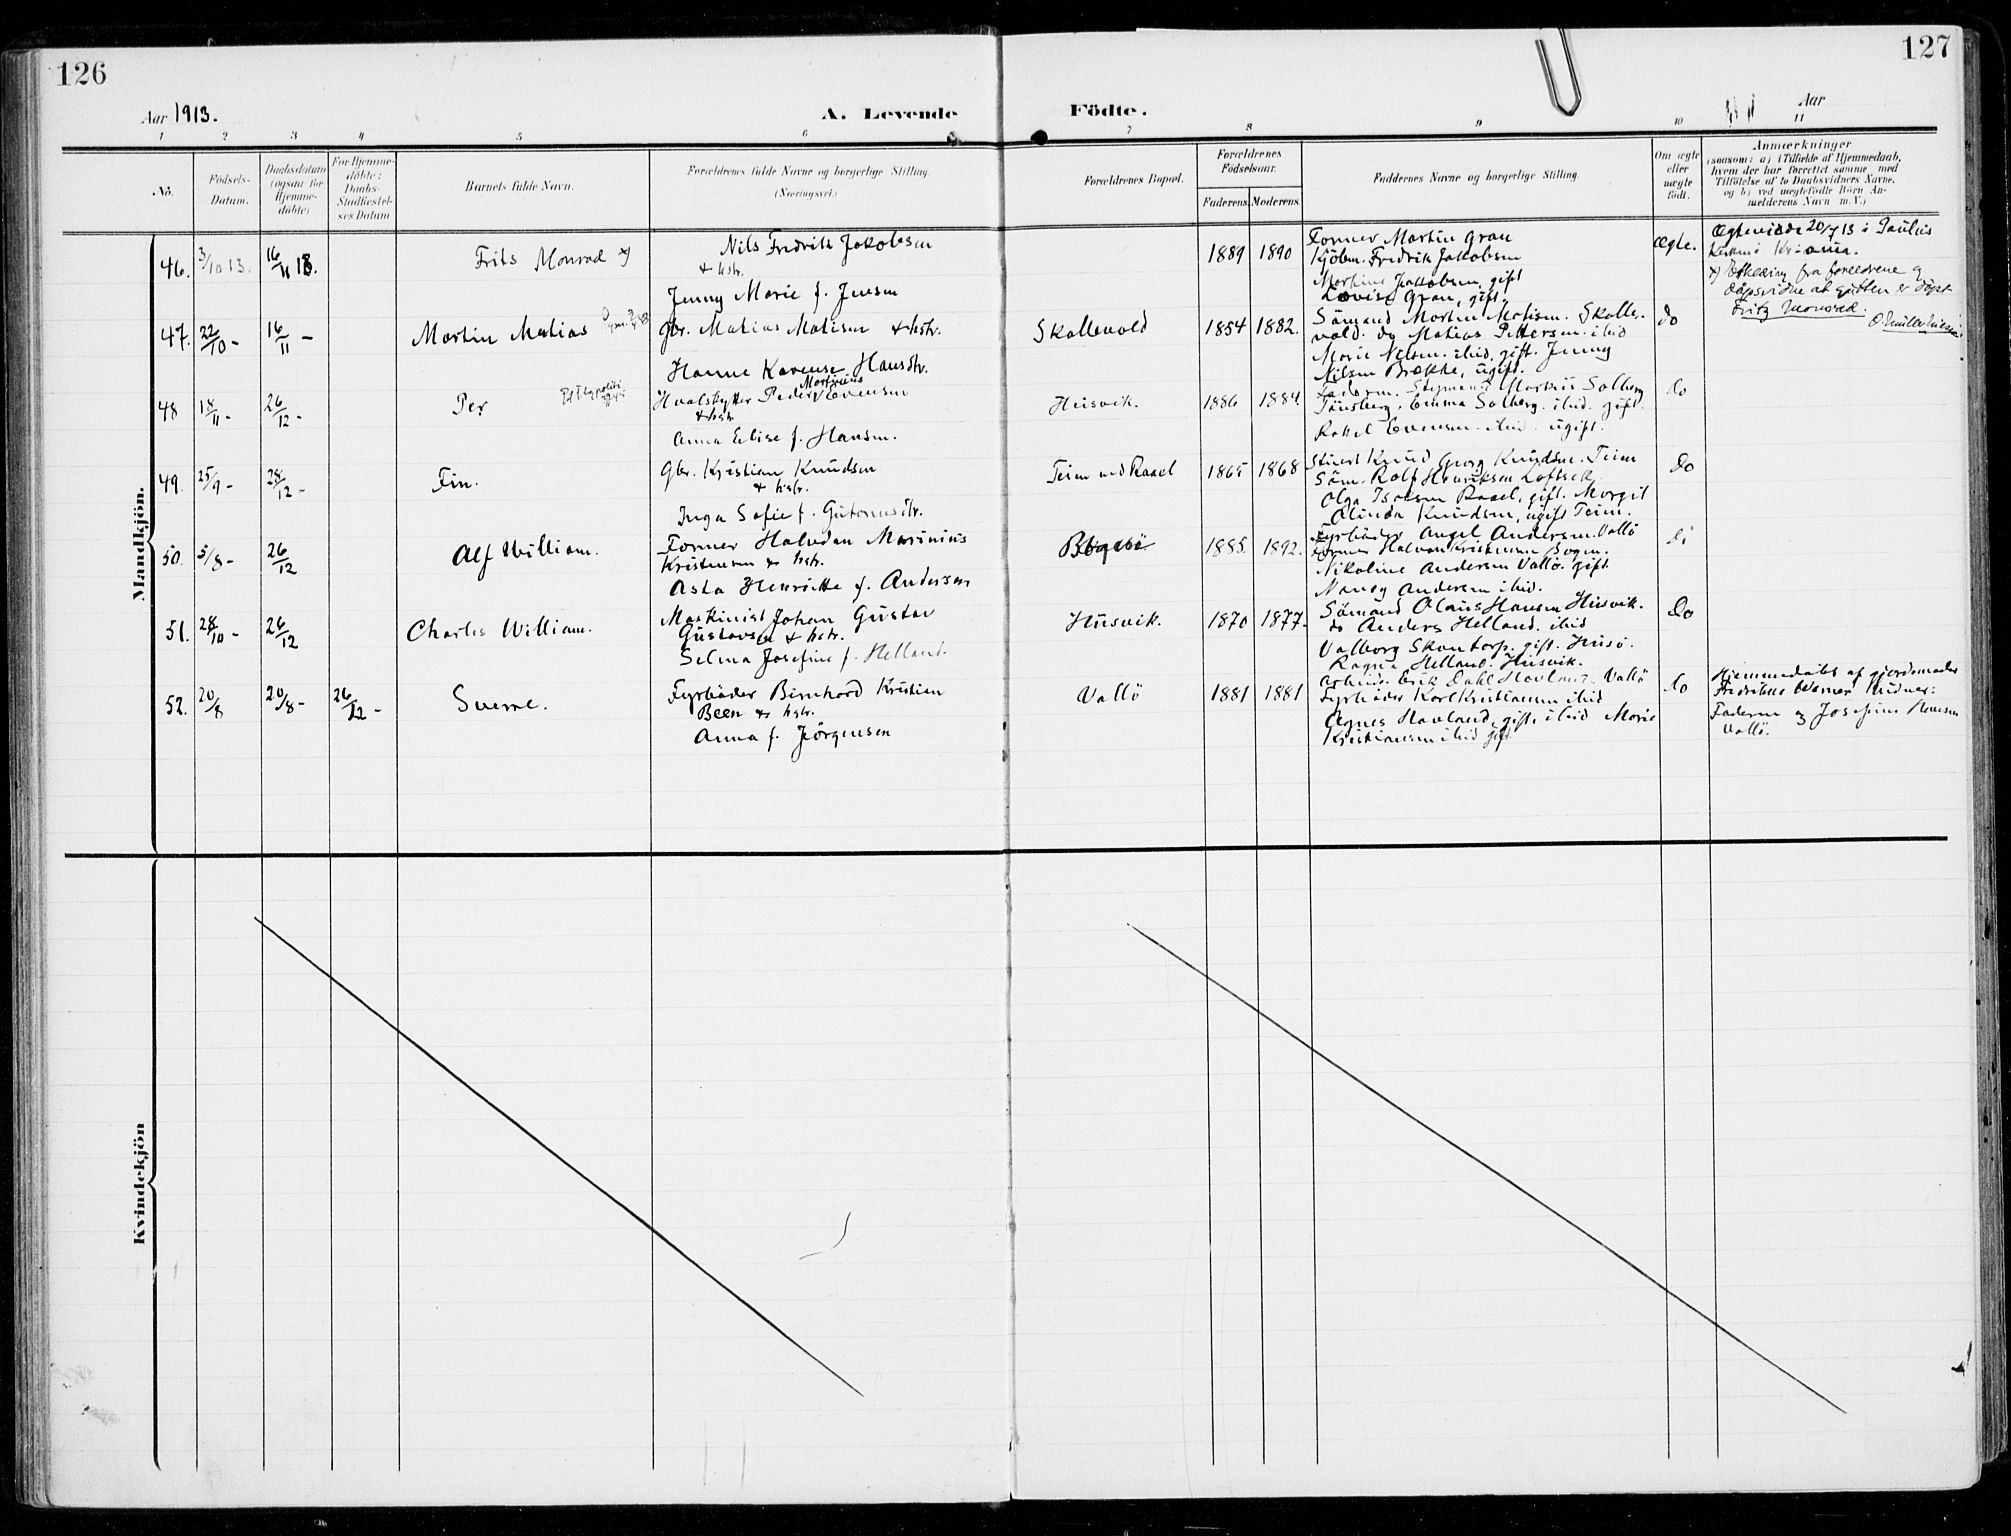 126
127
Aar 1913.
A. Levende
Födte.
Aar
1 2 3 4 5 6 7 8 9 10 11
No.
Födsels-
Datum.
Daabsdatum
(ogsaa for
Hjemme-
döbte)
For Hjemme-
döbte:
Daabs-
Stadfæstel-
ses Datum
Barnets fulde Navn.
Forældrenes fulde Navne og borgerlige Stilling
(Næringsvei.)
Forældrenes Bopæl.
Forældrenes
Födselsaar.
Faderens.
Moderens.
Faddernes Navne og borgerlige Stilling.
Om ægte
eller
uægte
födt.
Anmærkninger
(saasom: a) i Tilfælde af Hjemmedaab,
hvem der har forrettet samme, med
Tilföielse af to Daabsvidners Navne.
og b) ved uægtefödte Börn An-
melderens Navn m. V.)
Mandkjön.
46. 3/10 13. 16/11 13.
Frits Monrad x)
Nils Fredrik Jakobsen
& hstr.
Jenny Marie f. Jensen
1889 1890
Former Martin Gran
Kjöbm. Fredrik Jakobsen
Martine Jakobsen, gift
Lovise Gran, gift.
Ægte.
Ægteviede 20/7 13 i Paulus
Kirke i Kr.ania.
x) Erklæring fra forældrene og
dåpsvidne at gutten er döpt
Fritz Monrad.
47. 22/10 - 16/11 -
Martin Matias
Gbr. Matias Matisen & hstr.
Hanne Karense Hansdtr.
Skallevold
1854 1882.
Sömand Martin Matisen. Skalle-
vold. do Matias Pettersen. ibid
Marie Nelsen. ibid, gift. Jenny
Nilsen Brække, ugift.
do
48 18/11 - 26/12 -
Per
Hvalskytter Peder Martinius Evensen
& hstr.
Anna Elise f. Hansen.
Husvik.
1886 1884.
Faderen. Styrmand Martin Solberg
Tönsberg, Emma Solberg. ibid. gift.
Rakel Evensen. ibid. ugift.
do
49. 25/9 - 28/12 -
Fin.
Gbr. Kristian Knudsen
& hstr.
Inga Sofie f. Gutormsdtr.
Teien ved Raael
1865 1868
Stuert Knud Georg Knudsen. Teien
Söm. Rolf Henriksen
Olga Isaksen Raael, gift. Margit
Olinda Knudsen, ugift Teien.
Do
50. 5/8 - 26/12
Alf William.
Former Halvdan Marinius
Kristensen & hstr.
Asta Henriette f. Andersen
1885. 1892.
Fyrböder Angel Andersen. Vallö
Former Halvdan Kristensen
Nikoline Andersen Vallö. gift
Nancy Andersen ibid.
do
51. 28/10 - 26/12
Charles William.
Maskinist Johan Gustav
Gustavsen & hstr.
Selma Josefine f. Helland.
Husvik.
1870 1877.
Sömand Olaus Hansen Husvik.
do Anders Helland. ibid
Valborg Skontorp. gift. Husö.
Ragna Helland. Husvik.
Do
52. 20/8 20/8 - 26/12 -
Sverre.
Fyrböder Bernhard Kristian
Been & hstr.
Anna f. Jörgensen
Vallö
1881 1881
Arbeid. Erik Dahl Havland. Vallö
Fyrböder Karl Kristiansen ibid
Agnes Havland, gift, ibid Marie
Kristiansen ibid gift
do
Hjemmedöbt af gjordemoder
Fredrikke Werner Vidner:
Faderen og Josefine Hansen
Vallö.
Kvindekjön